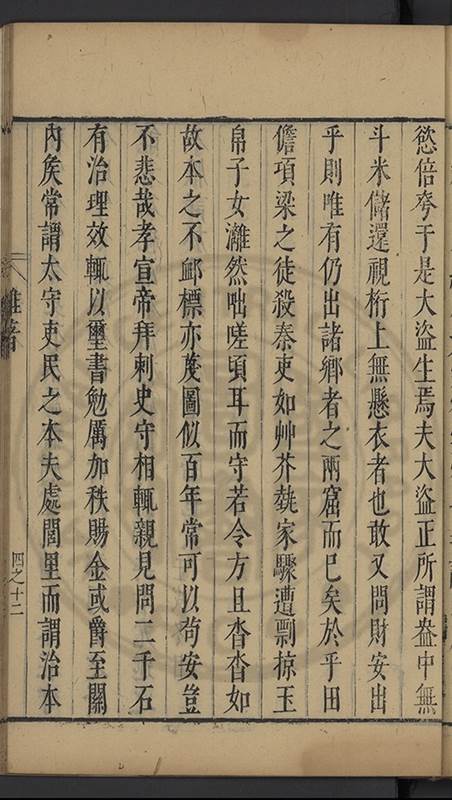 慾倍奢于是大盜生焉夫大盜正所謂盎中無
斗米儲還視桁上無懸衣者也敢又問財安出
乎則唯有仍出諸鄉者之兩窟而已矣於乎田
儋項梁之徒殺秦吏如艸芥執家驟遭剽掠玉
帛子女灕然咄嗟頃耳而守若令方且沓沓如
故本之不䘏標亦蔑圖似百年常可以苟安豈
不悲哉孝宣帝拜刺史守相輒親見問二千石
有治理效輒以璽書勉厲加秩賜金或爵至關
內矦常謂太守吏民之本夫處閭里而謂治本
雜著
四之十二